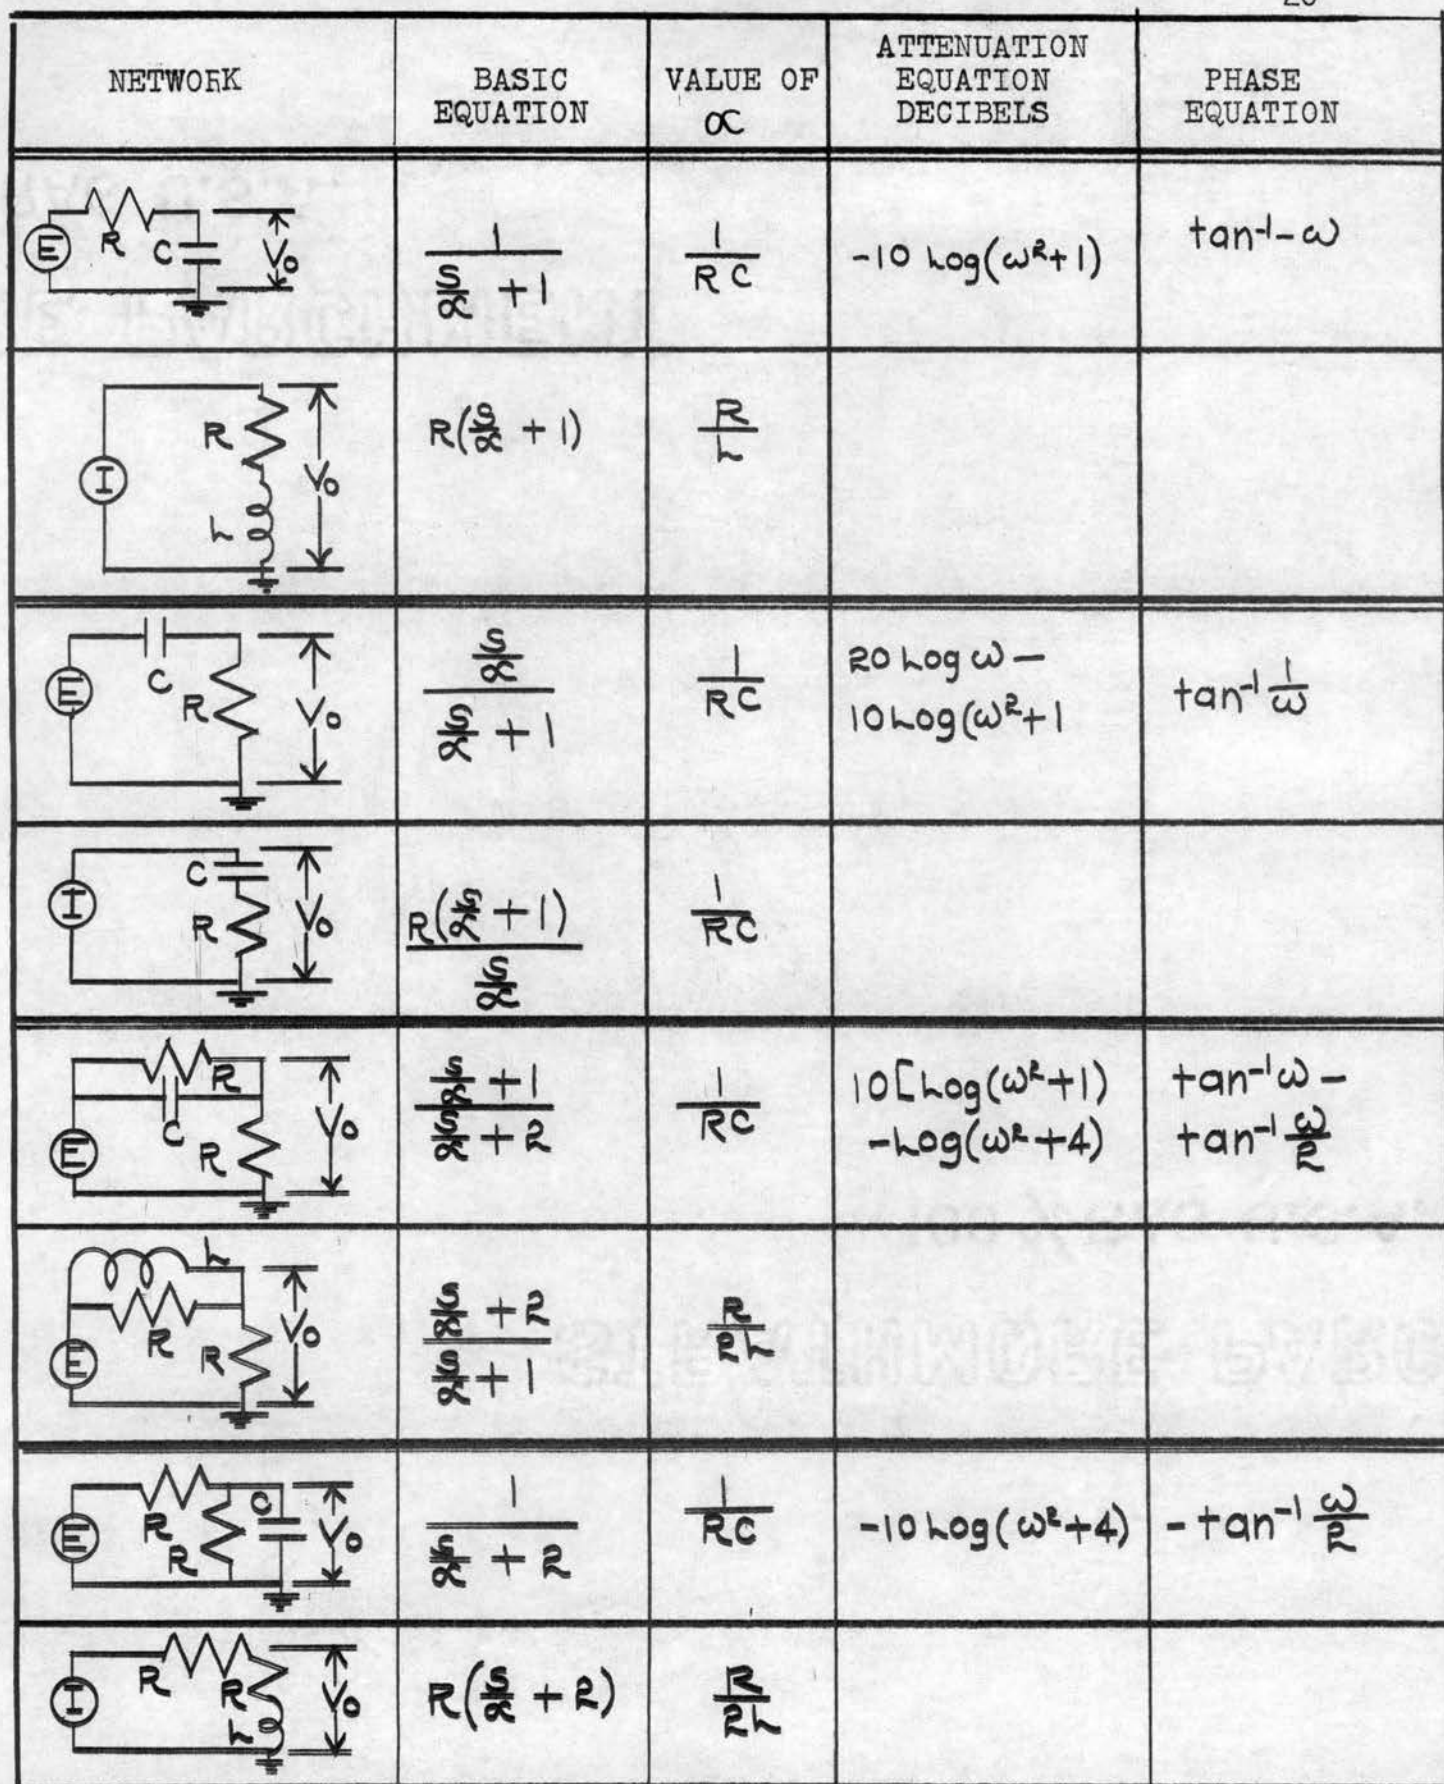 NETWORK
BASIC
EQUATION
VALUE OF
∝
ATTENUATION
EQUATION
DECIBELS
PHASE
EQUATION
E R C V₀
1
S/∝ + 1
1
RC
-10 Log(ω²+1)
tan⁻¹-ω
I R L V₀
R(S/∝ + 1)
R
L
E C R V₀
S/∝
S/∝ + 1
1
RC
20 Log ω –
10 Log(ω²+1
tan⁻¹ 1/ω
I C R V₀
R(S/∝ + 1)
S/∝
1
RC
E R C R V₀
S/∝ + 1
S/∝ + 2
1
RC
10[Log(ω²+1)
-Log(ω²+4)
tan⁻¹ω –
tan⁻¹ ω/2
E L R R V₀
S/∝ + 2
S/∝ + 1
R
2L
E R R C V₀
1
S/∝ + 2
1
RC
-10 Log(ω²+4)
-tan⁻¹ ω/2
I R R L V₀
R(S/∝ + 2)
R
2L